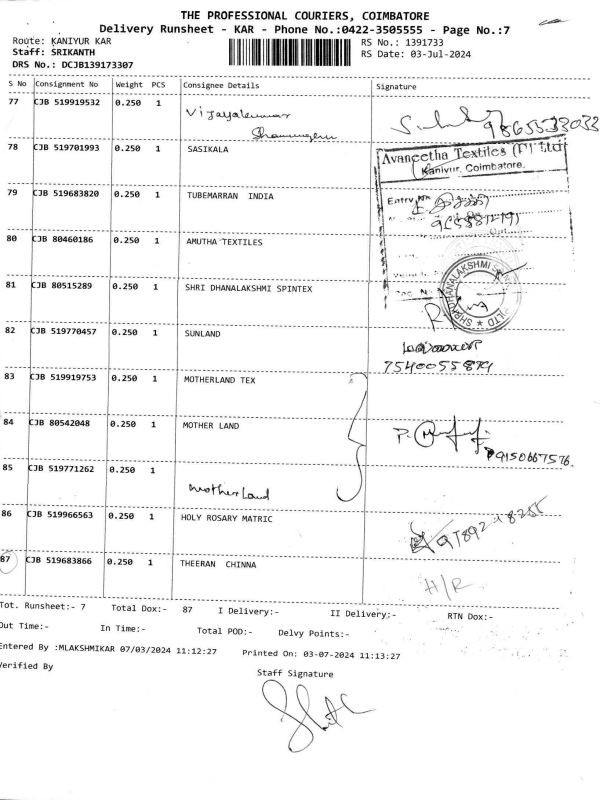 THE PROFESSIONAL COURIERS, COIMBATORE
Delivery Runsheet - KAR - Phone No.:0422-3505555 - Page No.:7
Route: KANIYUR KAR
Staff: SRIKANTH
DRS No.: DCJB139173307
RS No.: 1391733
RS Date: 03-Jul-2024
S No Consignment No Weight PCS Consignee Details Signature
77 CJB 519919532 0.250 1 Vijayakumar
9865533033
78 CJB 519701993 0.250 1 SASIKALA
Avaneetha Textiles (P) Ltd
Kaniyur, Coimbatore.
79 CJB 519683820 0.250 1 TUBEMARRAN INDIA
Entry
80 CJB 80460186 0.250 1 AMUTHA TEXTILES
81 CJB 80515289 0.250 1 SHRI DHANALAKSHMI SPINTEX
82 CJB 519770457 0.250 1 SUNLAND
7540055879
83 CJB 519919753 0.250 1 MOTHERLAND TEX
84 CJB 80542048 0.250 1 MOTHER LAND
9150667576.
85 CJB 519771262 0.250 1
motherland
86 CJB 519966563 0.250 1 HOLY ROSARY MATRIC
87 CJB 519683866 0.250 1 THEERAN CHINNA
H/R
Tot. Runsheet:- 7 Total Dox:- 87 I Delivery:- II Delivery:- RTN Dox:-
Out Time:- In Time:- Total POD:- Delvy Points:-
Entered By :MLAKSHMIKAR 07/03/2024 11:12:27 Printed On: 03-07-2024 11:13:27
Verified By
Staff Signature